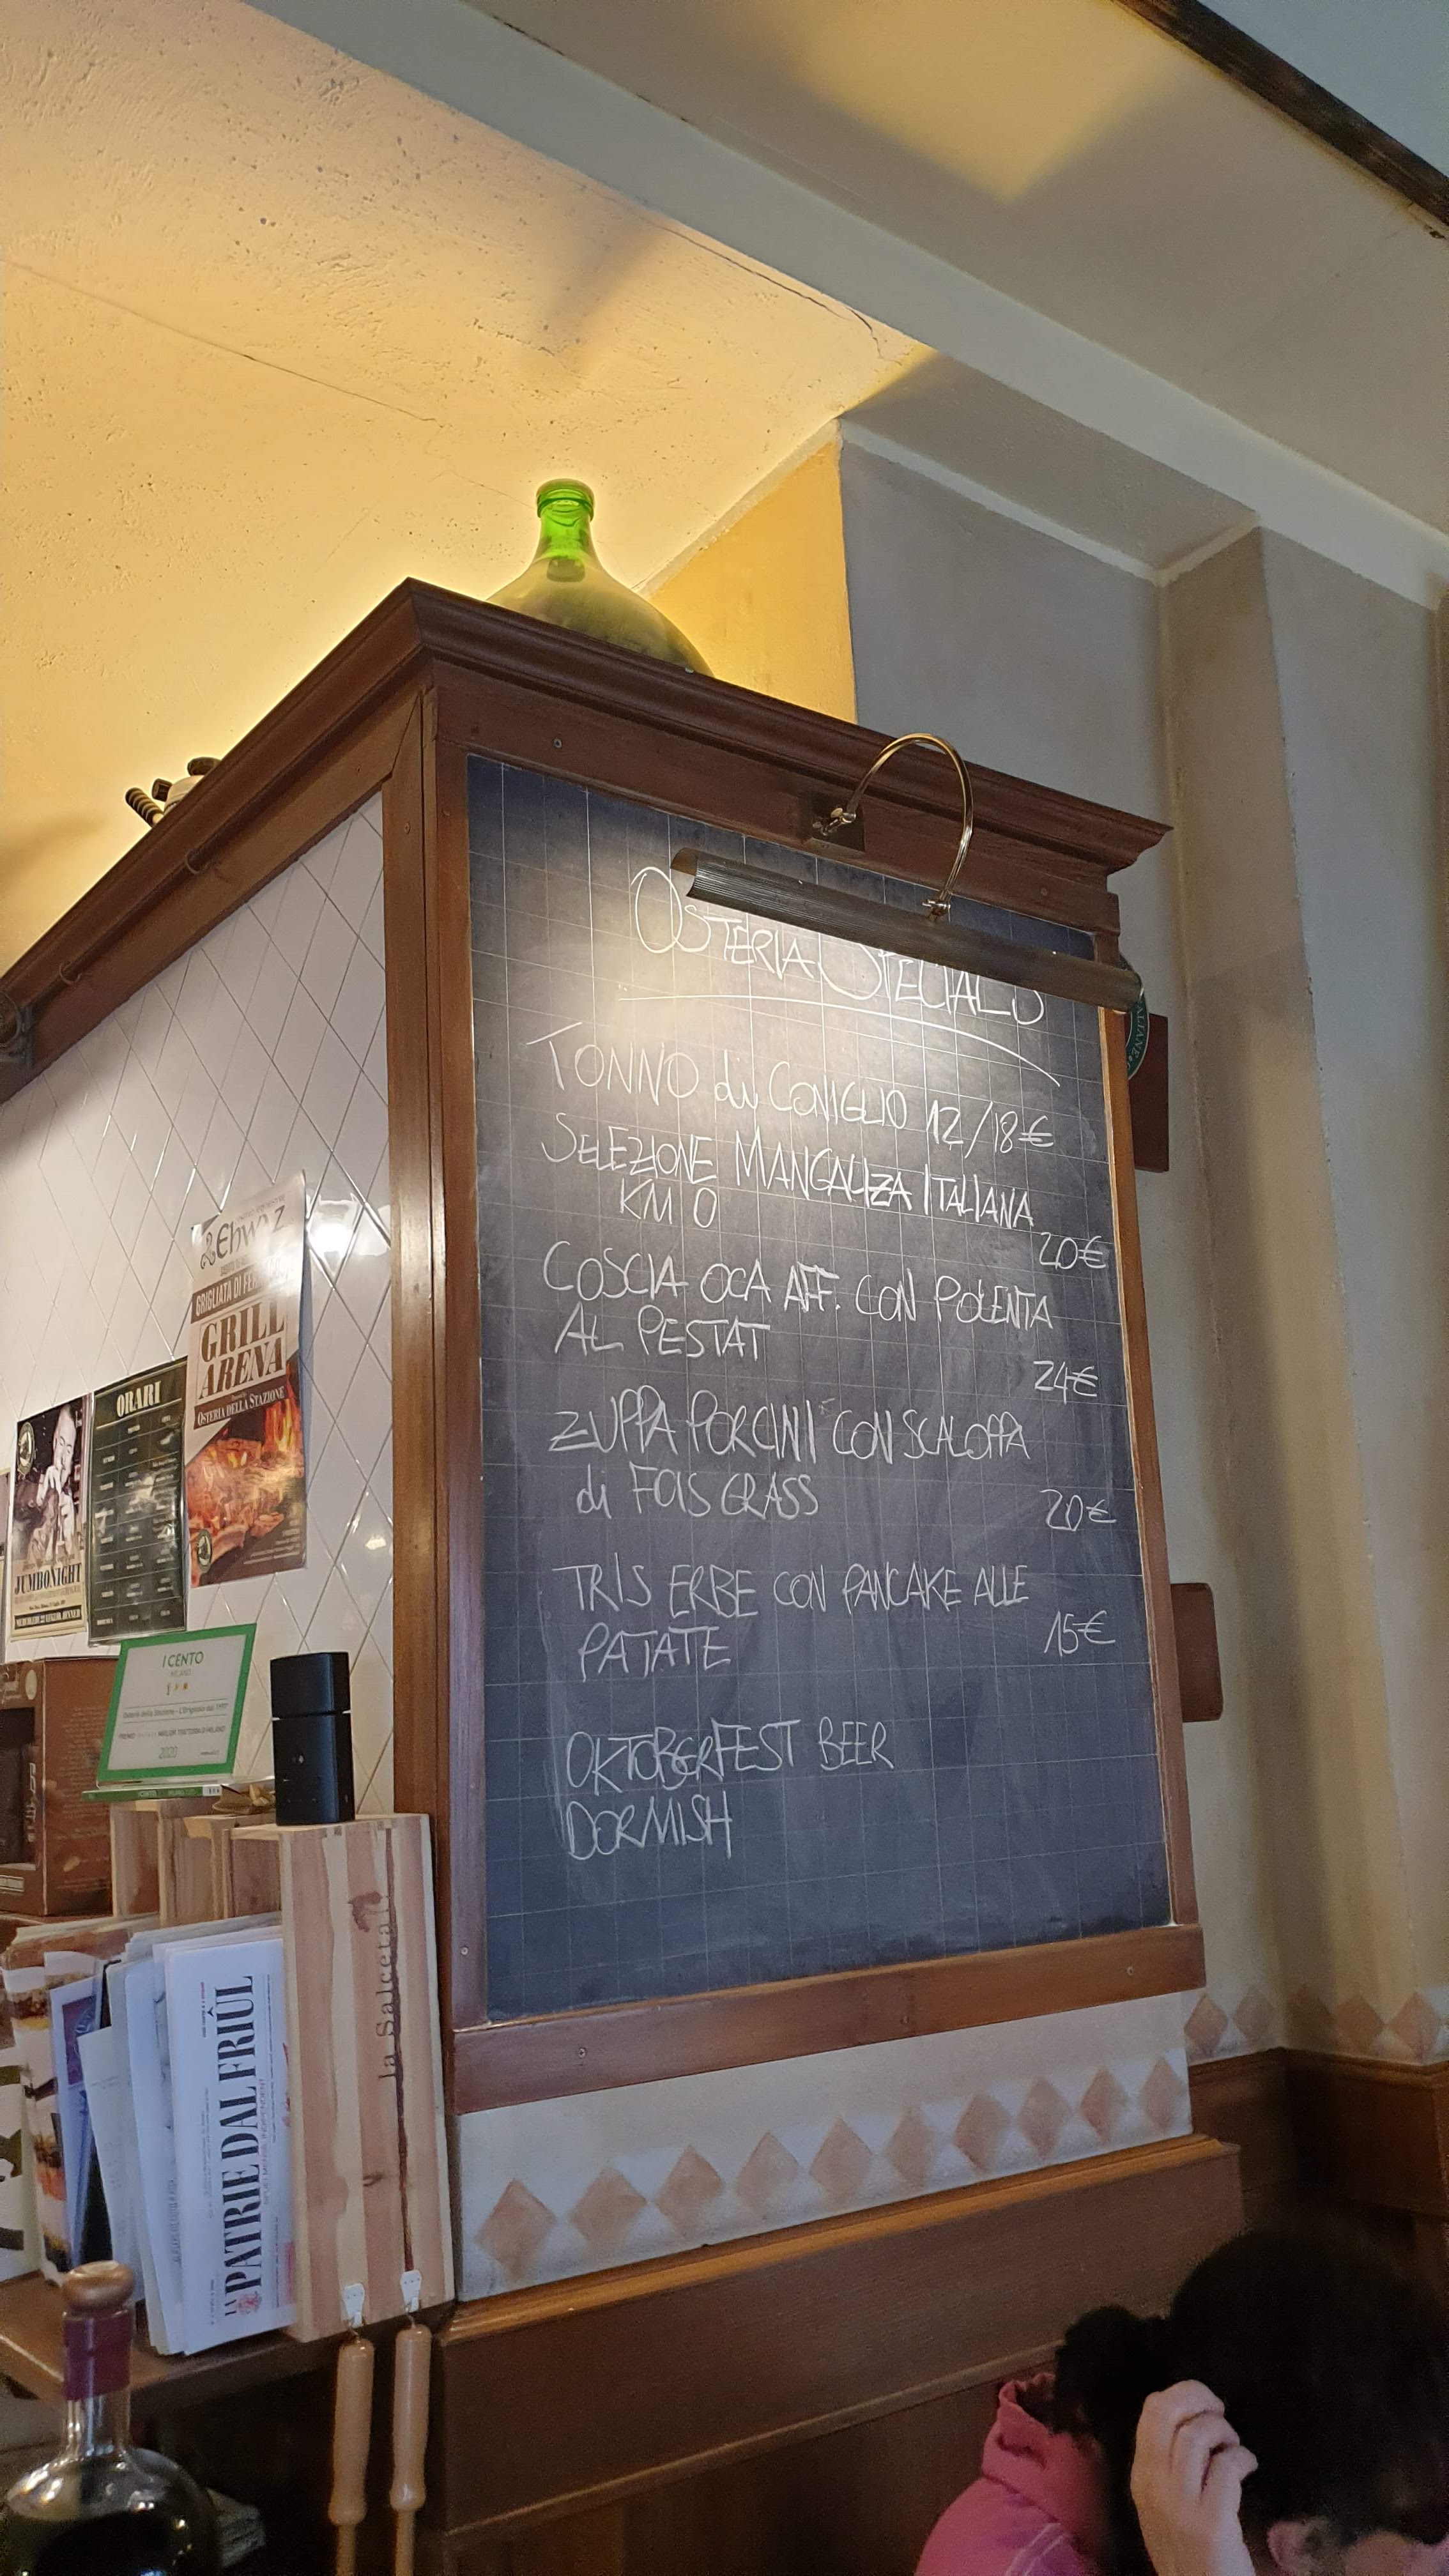 OSTERIA SPECIALS
TONNO di CONIGLIO 12/18€
SELEZIONE MANGALIZA ITALIANA
KM 0
20€
COSCIA OCA AFF. CON POLENTA
AL PESTAT
24€
ZUPPA PORCINI CON SCALOPPA
di FOIS GRASS
20€
TRIS ERBE CON PANCAKE ALLE
PATATE
15€
OKTOBERFEST BEER
DORMISH
Ehwaz
GRILL
ARENA
OSTERIA DELLA STAZIONE
ORARI
JUMBONIGHT
I CENTO
MILANO
Osteria della Stazione - L'Originale
2020
la Salceta
LA PATRIE DAL FRIÛL